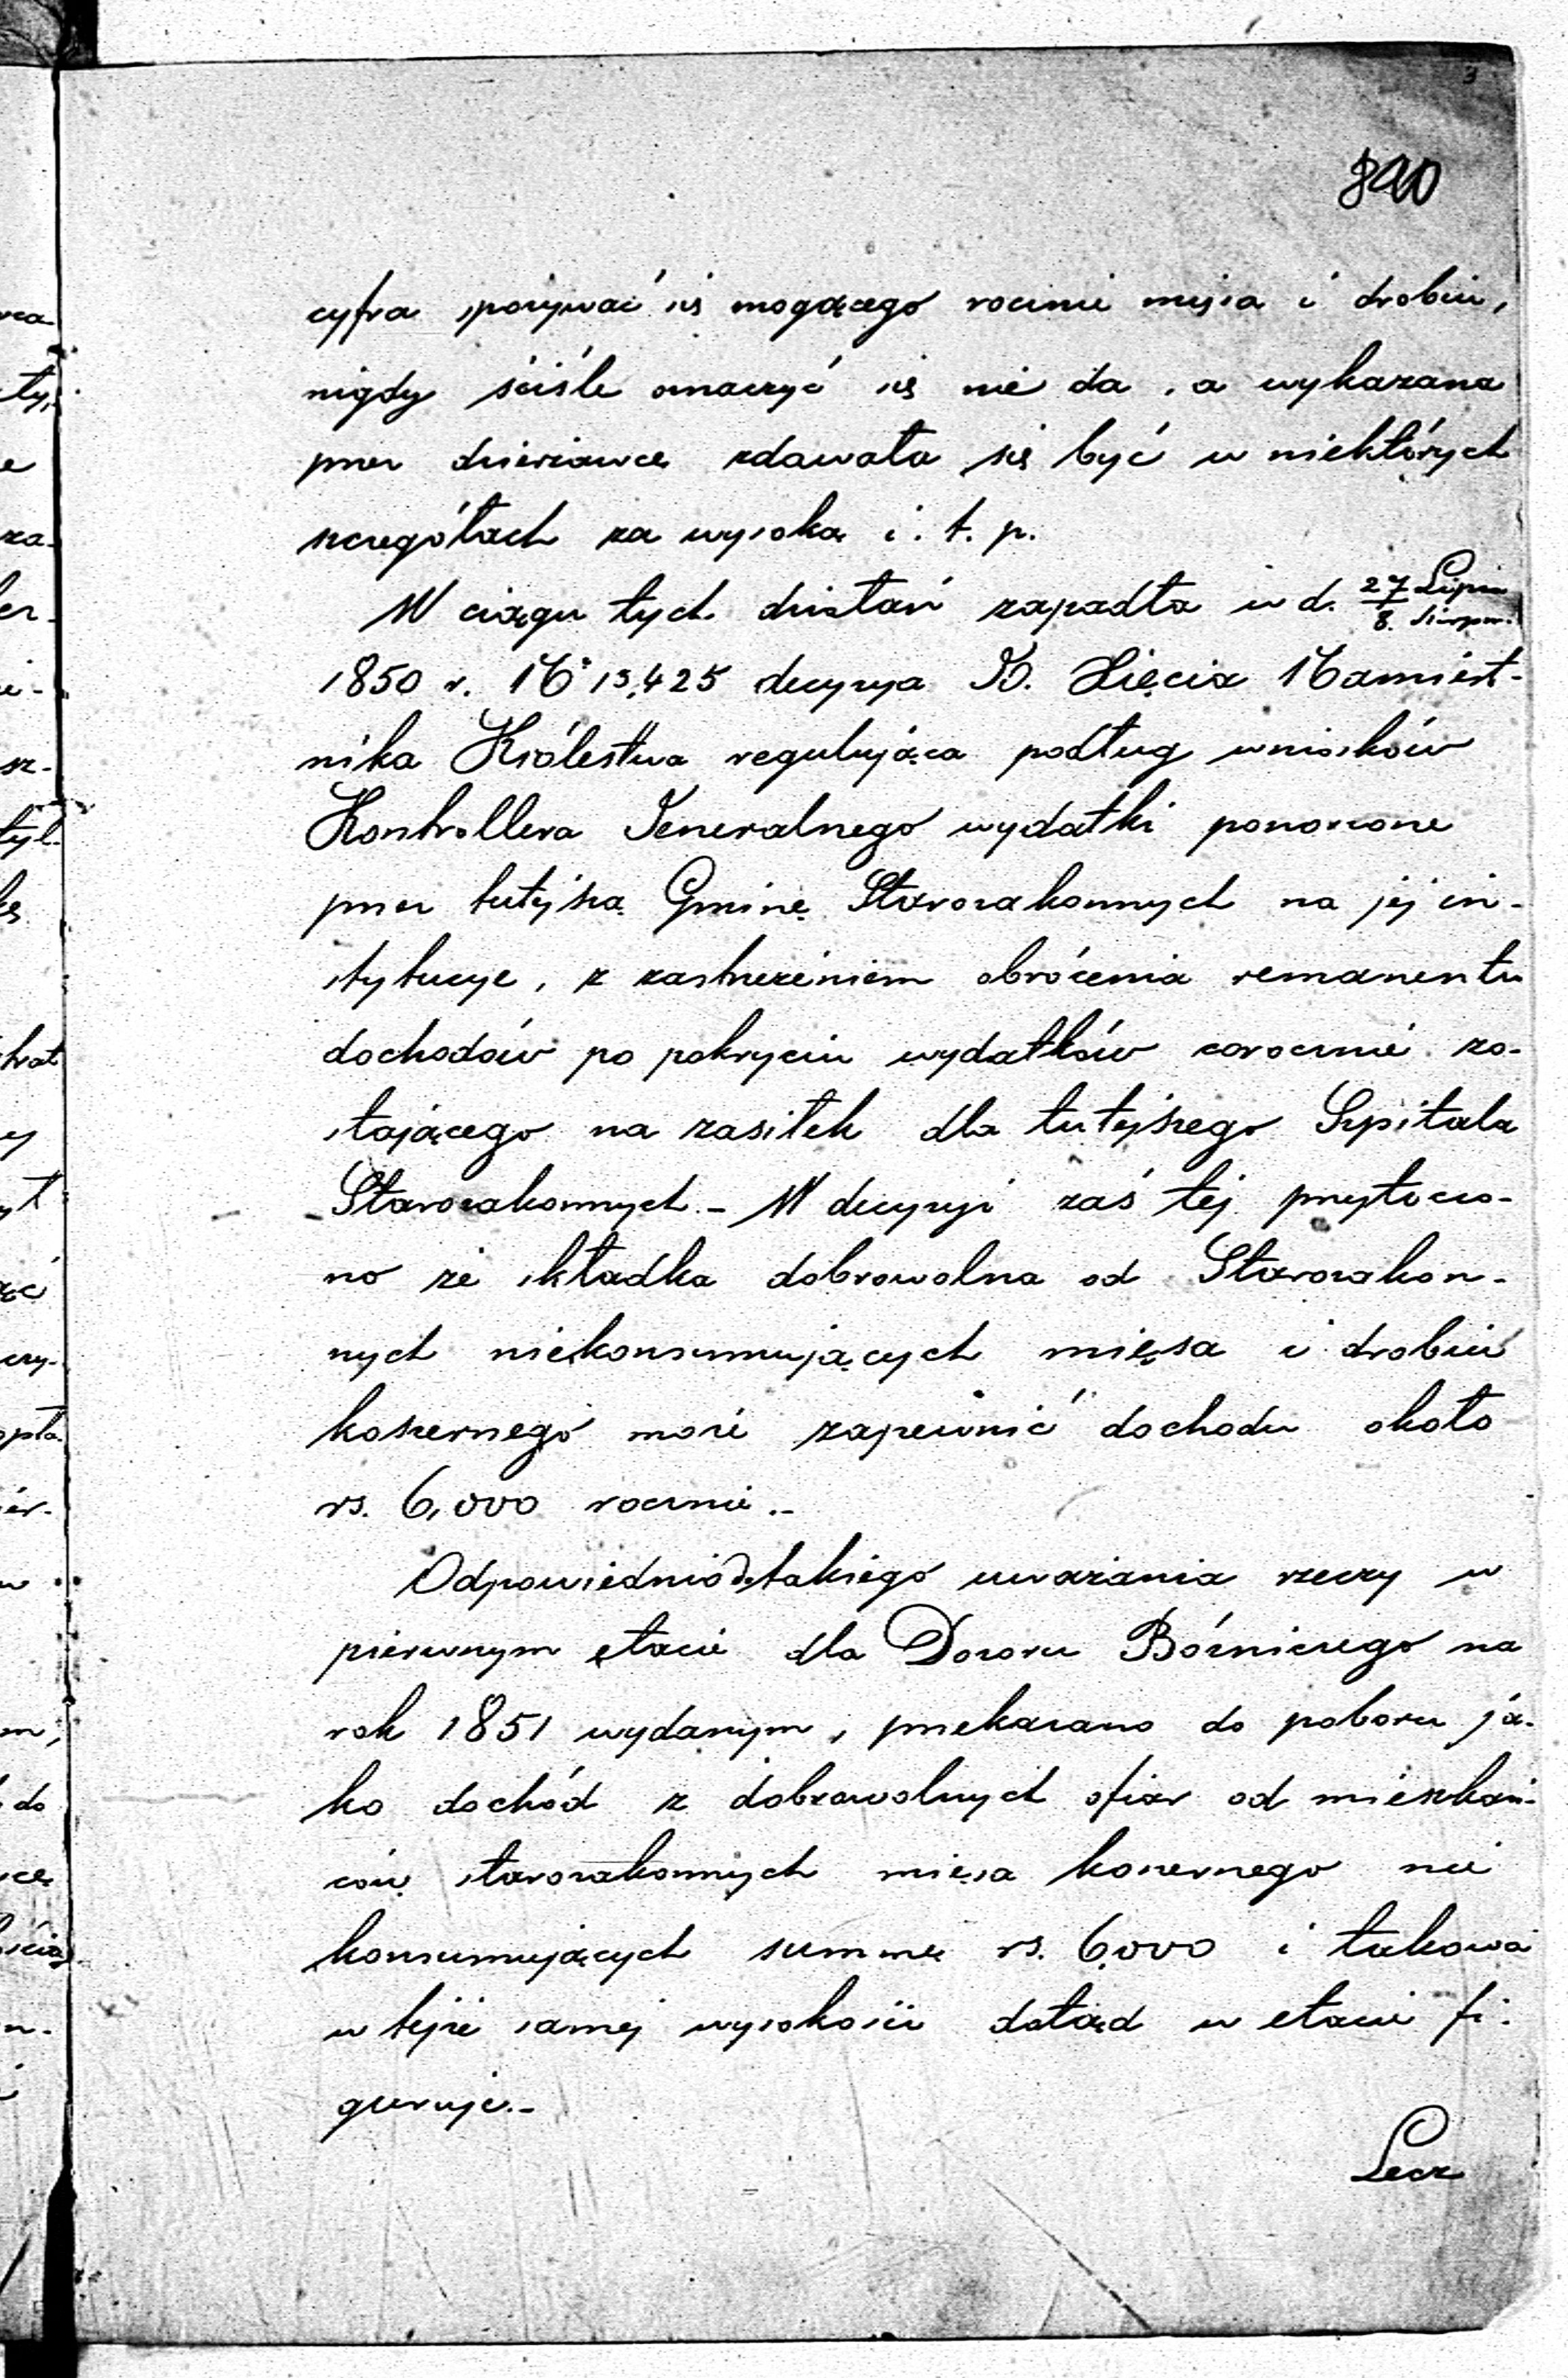 3
890
cyfra spożywać się mogącego rocznie mięsa i drobiu,
nigdy ściśle oznaczyć się nie da, a wykazana
przez dzierżawcę zdawała się być w niektórych
szczegółach za wysoką i. t. p.
W ciągu tych działań zapadła w d. 27 Lipca / 8. Sierpn.
1850 r. No 13,425 decyzya JO. Xięcia Namiest-
nika Królestwa regulująca podług wniosków
Kontrollera Jeneralnego wydatki ponoszone
przez tutejszą Gminę Starozakonnych na jej in-
stytucye, z zastrzeżeniem obrócenia remanentu
dochodów po pokryciu wydatków corocznie zo-
stającego na zasiłek dla tutejszego Szpitala
Starozakonnych. – W decyzyi zaś tej przytoczo-
no że składka dobrowolna od Starozakon-
nych niekonsumujących mięsa i drobiu
koszernego może zapewnić dochodu około
rs. 6,000 rocznie. –
Odpowiednio do takiego uważania rzeczy w
pierwszym etacie dla Dozoru Bóżniczego na
rok 1851 wydanym, przekazano do poboru ja-
ko dochód z dobrowolnych ofiar od mieszkań-
ców starozakonnych mięsa koszernego nie
konsumujących summę rs. 6,000 i takowa
w tejże samej wysokości dotąd w etacie fi-
guruje. –
Lecz